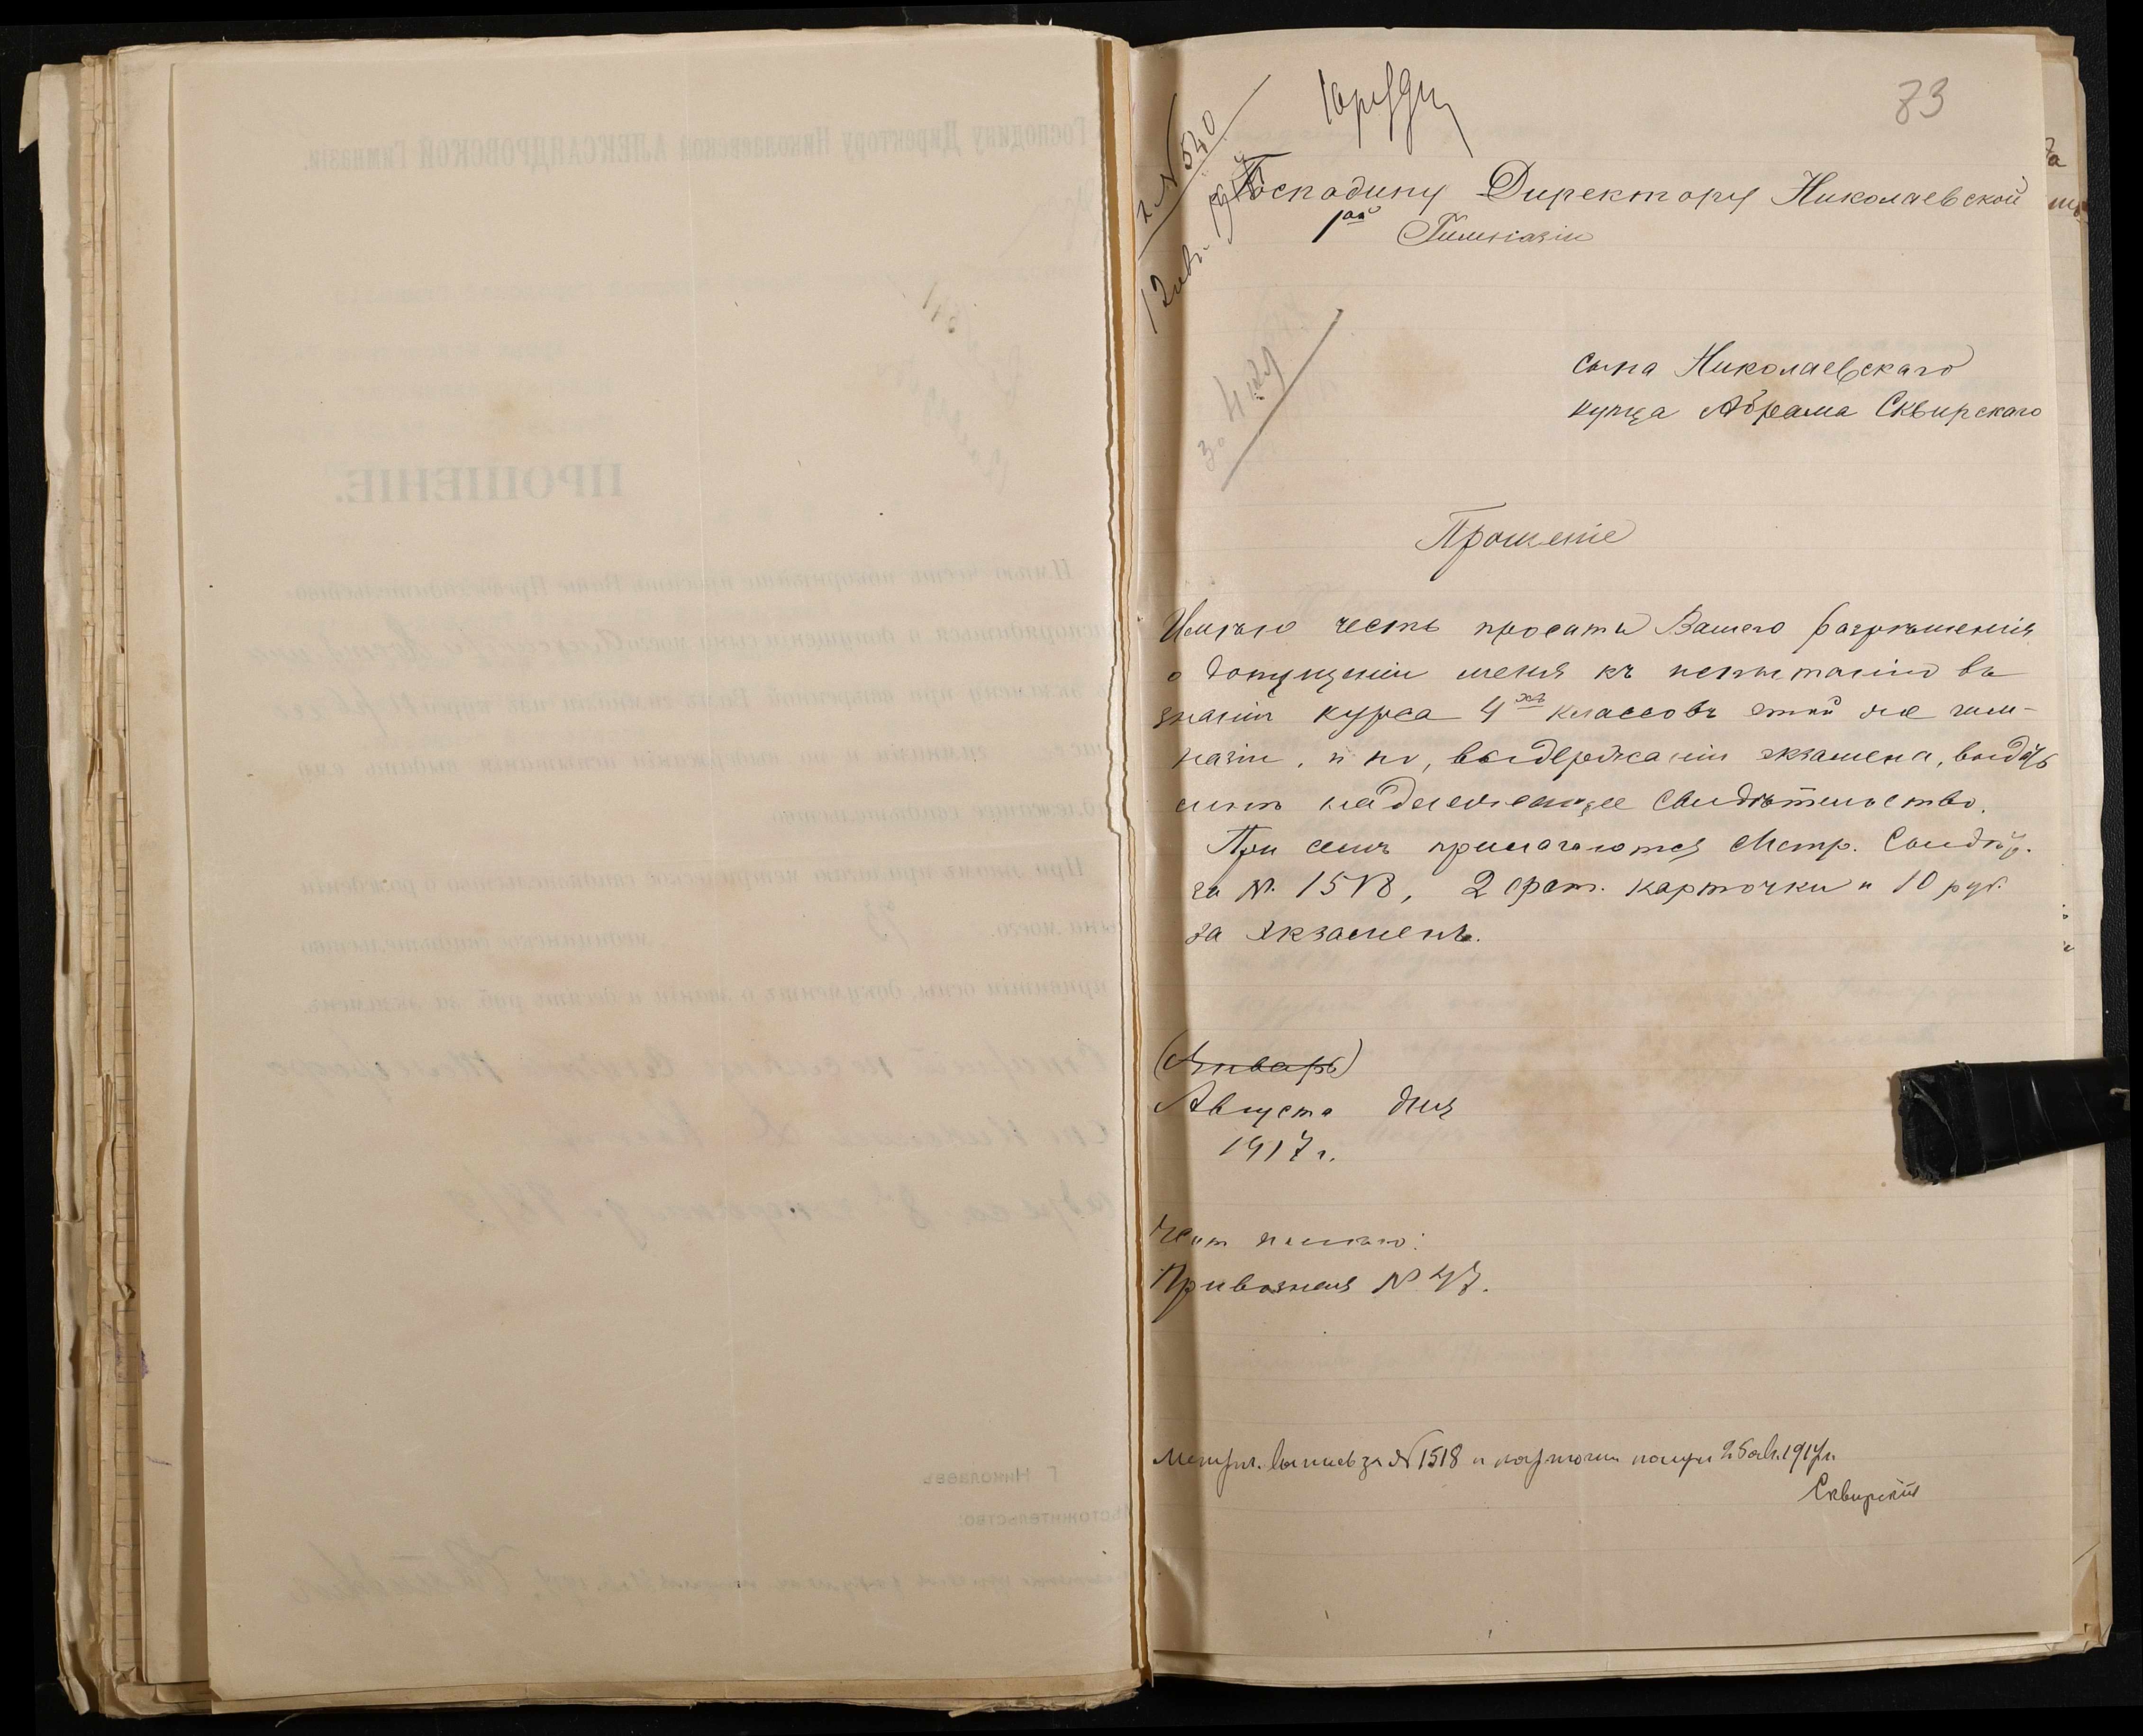 83
№ 540
Господину Директору Николаевской
1ой Гимназіи
сына Николаевскаго
купца Абрама Сквирскаго
Прошеніе
Имѣю честь просить Вашего разрѣшенія
о допущеніи меня къ испытанію въ
знаніи курса 4хъ классовъ этой же гим-
назіи, и по, выдержаніи экзамена, выдать
мнѣ надлежащее свидѣтельство.
При семъ прилагаются Метр. Свидѣт.
за №. 1518, 2 фот. карточки и 10 руб.
за экзаменъ.
(Январь)
Августа дня
1917 г.
Привозная № 47.
Метрич. выпись за № 1518 и карточки получ 25 авг. 1917 г.
Сквирскій